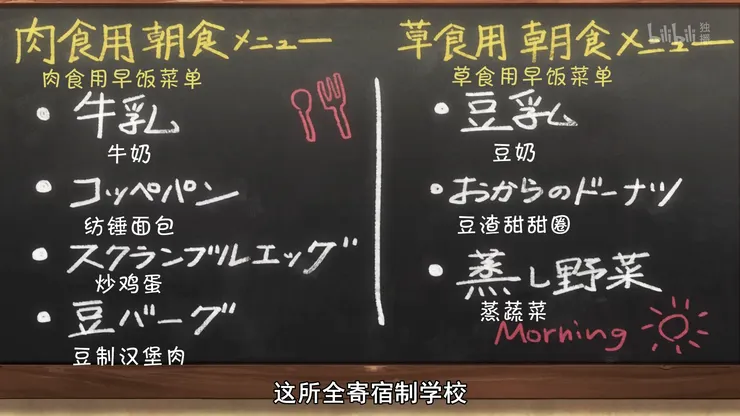 肉食用朝食メニュー
肉食用早饭菜单
・牛乳
牛奶
・コッペパン
纺锤面包
・スクランブルエッグ
炒鸡蛋
・豆バーグ
豆制汉堡肉
草食用朝食メニュー
草食用早饭菜单
・豆乳
豆奶
・おからのドーナツ
豆渣甜甜圈
・蒸し野菜
蒸蔬菜
Morning
bilibili 独播
这所全寄宿制学校